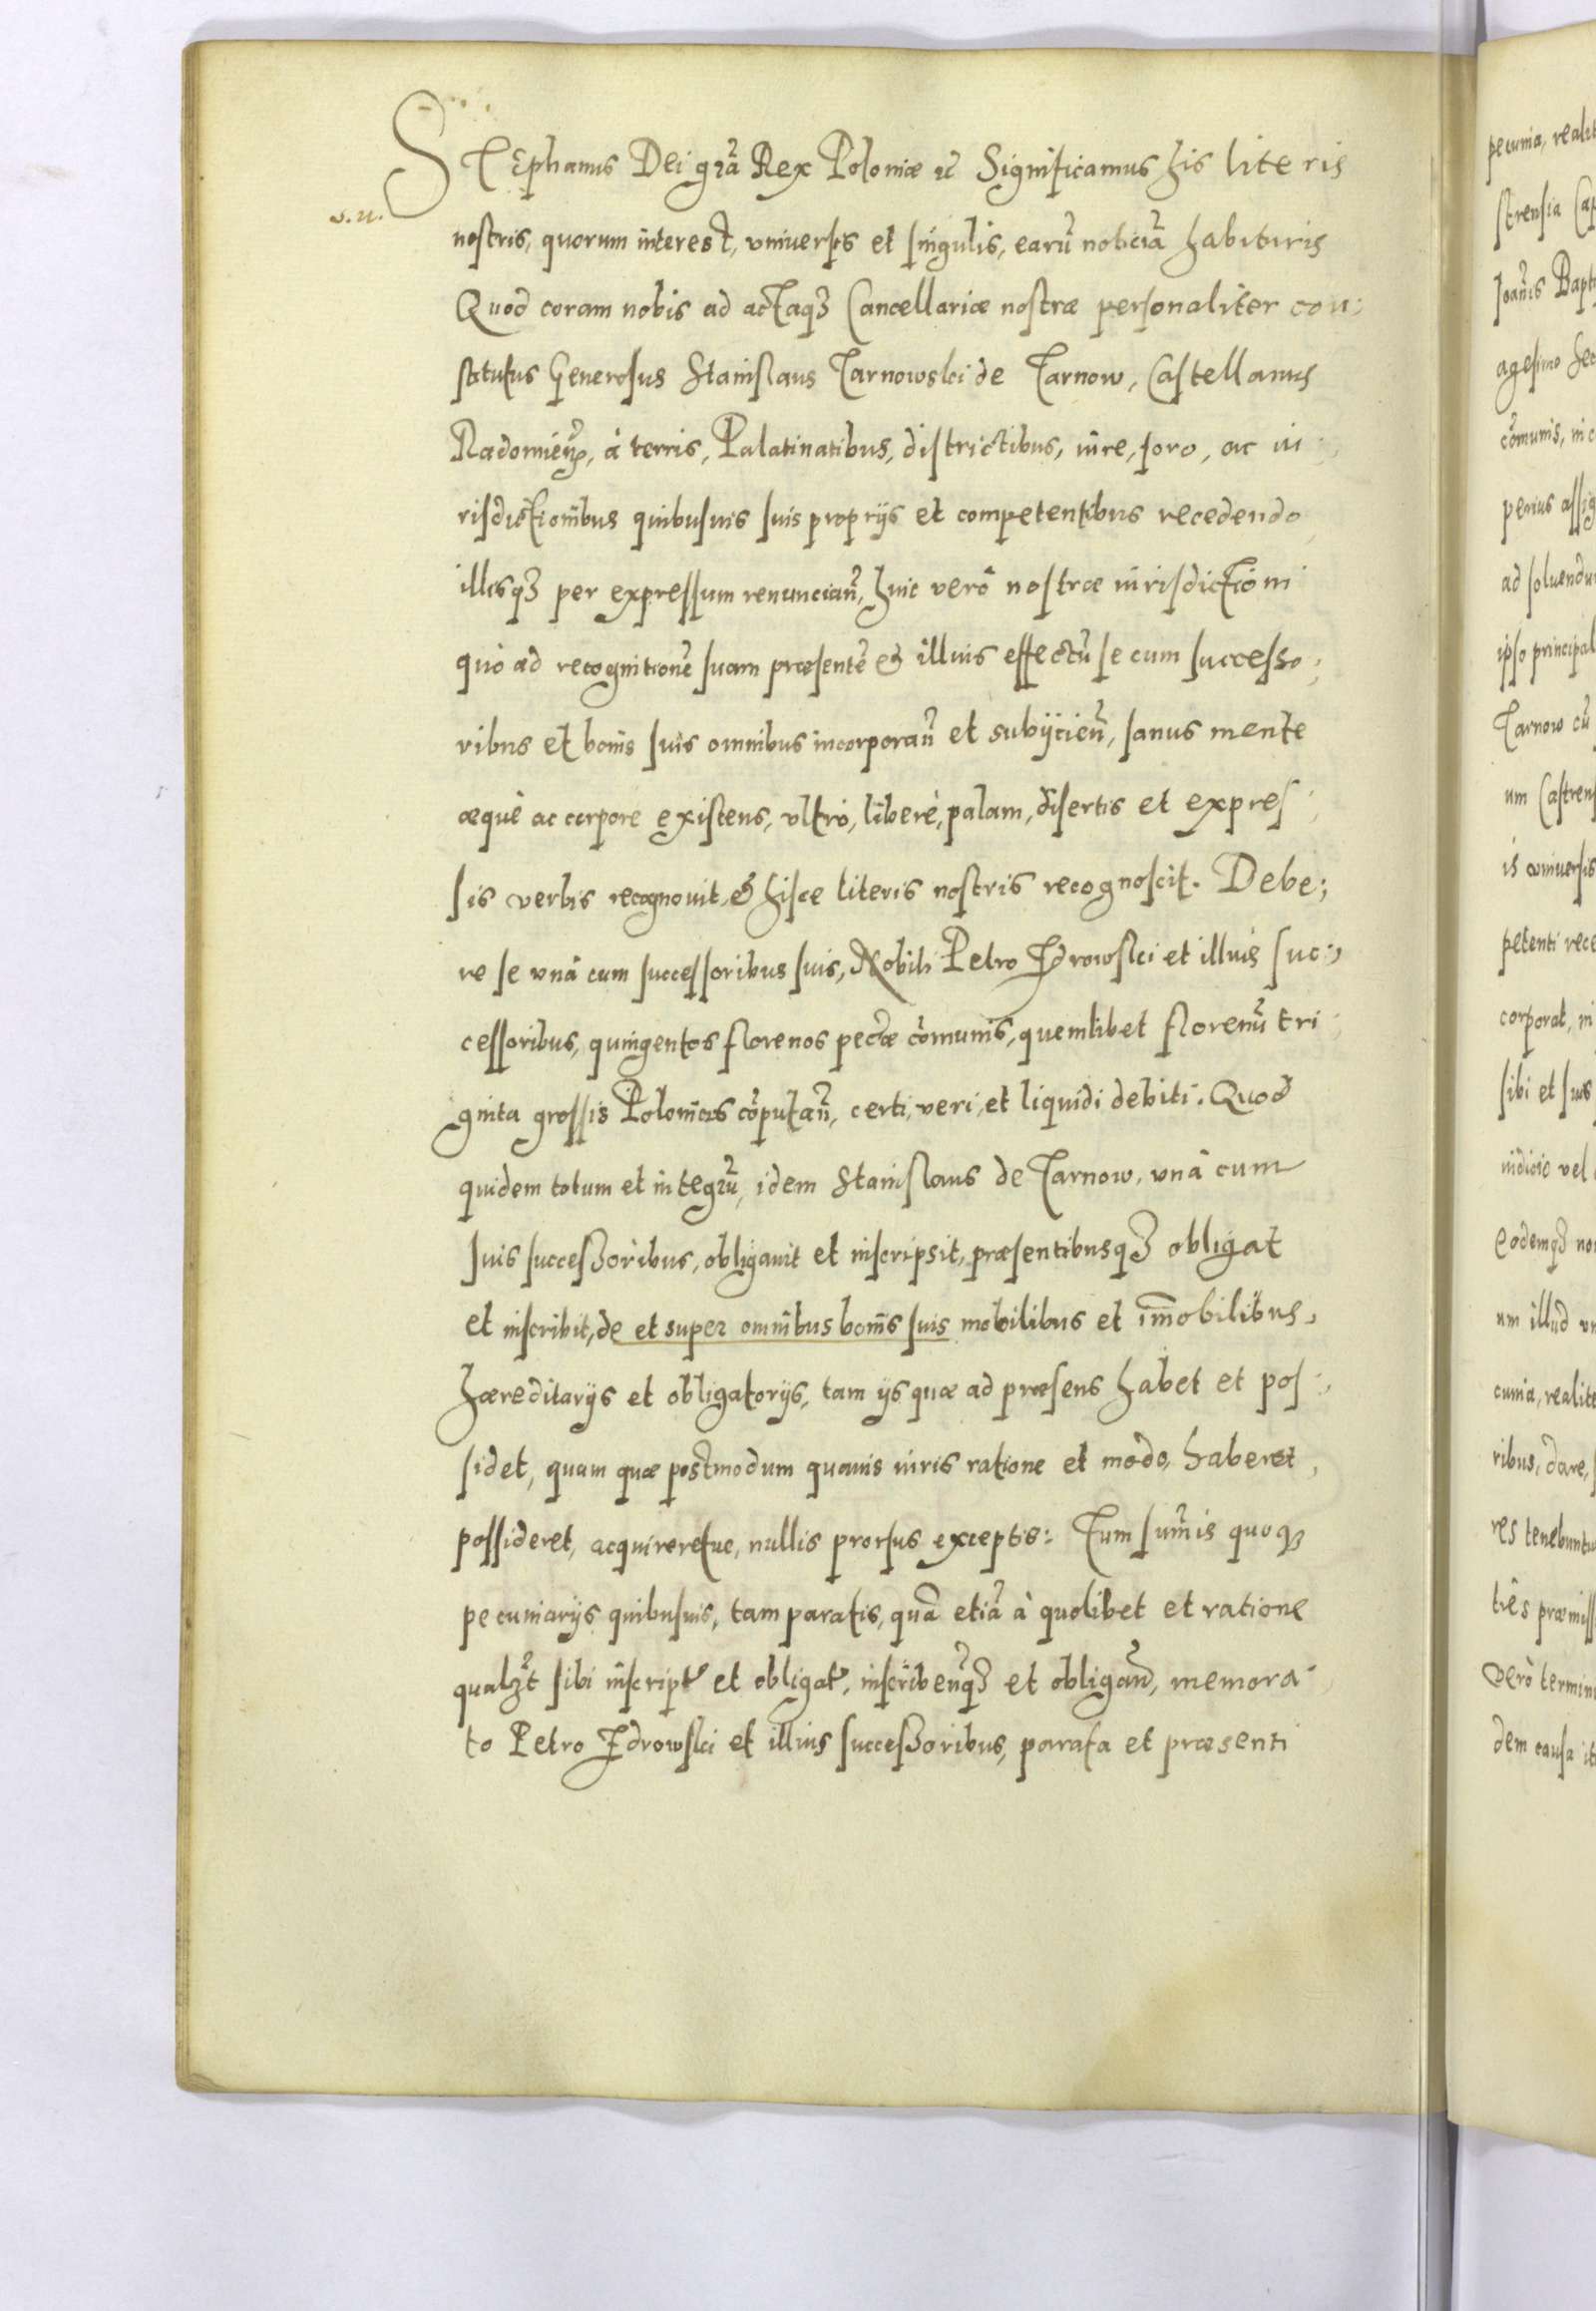 STEphanus Dei gr̃a Rex Poloniæ ꝛc̃ Significamus his literis
s.u.
nostris, quorum interest, vniuersis et singulis, earũ noticiã habituris
Quod coram nobis ad actaqꝫ Cancellariæ nostræ personaliter con:
stitutus Generosus Stanislaus Tarnowski de Tarnow, Castellanus
Radomieñ, à terris, Palatinatibus, districtibus, iure, foro, ac iu:
risdictionibus quibusuis suis proprijs et competentibus recedendo,
illisqꝫ per expressum renuncian̄, huic verò nostræ iurisdictioni
quò ad recognitionẽ suam præsentẽ & illius effectũ se cum successo:
ribus et bonis suis omnibus incorporan̄ et subijcien̄, sanus mente
æquè ac corpore existens, vltrò, liberè, palam, disertis et expres:
sis verbis recognouit, & hisce literis nostris recognoscit. Debe:
re se vnà cum successoribus suis, Nobili Petro Zdrowski et illius suc:
cessoribus, quingentos florenos pecũæ cõmunis, quemlibet florenũ tri:
ginta grossis Polonicis cõputan̄, certi, veri, et liquidi debiti. Quod
quidem totum et integrũ, idem Stanislaus de Tarnow, vnà cum
suis successoribus, obligauit et inscripsit, præsentibusqꝫ obligat
et inscribit, de et super omnibus bonis suis mobilibus et im̄obilibus,
hæreditarijs et obligatorijs, tam ijs quæ ad præsens habet et pos:
sidet, quam quæ postmodum quouis iuris ratione et modo, haberet,
possideret, acquireretue, nullis prorsus exceptis: Tum sum̄is quoqꝫ
pecuniarijs quibusuis, tam paratis, quã etiã à quolibet et ratione
qualꝫt sibi inscript' et obligat', inscriben̄qꝫ et obligan̄, memora:
to Petro Zdrowski et illius successoribus, parata et præsenti
pecunia, realit
strensia Cap
Joan̄is Bapt
agesimo sec
cõmunis, in c
penius assig
ad soluendu
ipso principal
Tarnow cũ
um Castrens
is vniuersis
petenti rece
corporat, in
sibi et suis
iudicio vel
eodemqꝫ no
um illud vn
cunia, realite
ribus, dare,
res tenebuntu
três præmiss
Verò termin
dem causa it